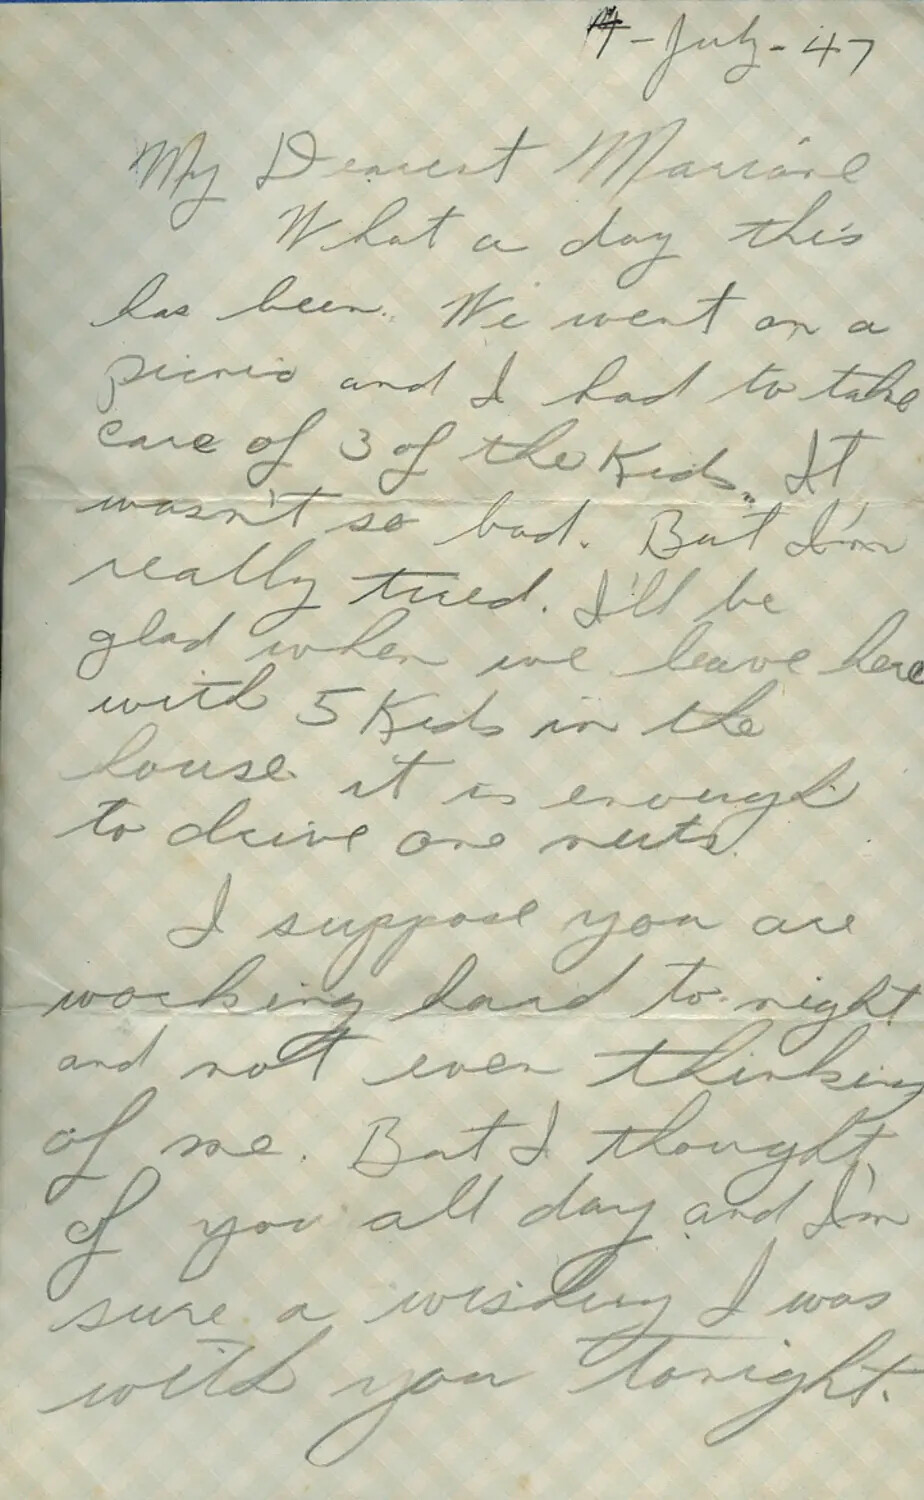 4-July-47
My Dearest Mariane
What a day this
has been. We went on a
picnic and I had to take
care of 3 of the Kids. It
wasn't so bad. But I'm
really tired. I'll be
glad when we leave here
with 5 Kids in the
house it is enough
to drive one nuts.
I suppose you are
working hard to-night
and not even thinking
of me. But I thought
of you all day and I'm
sure a wishing I was
with you tonight.